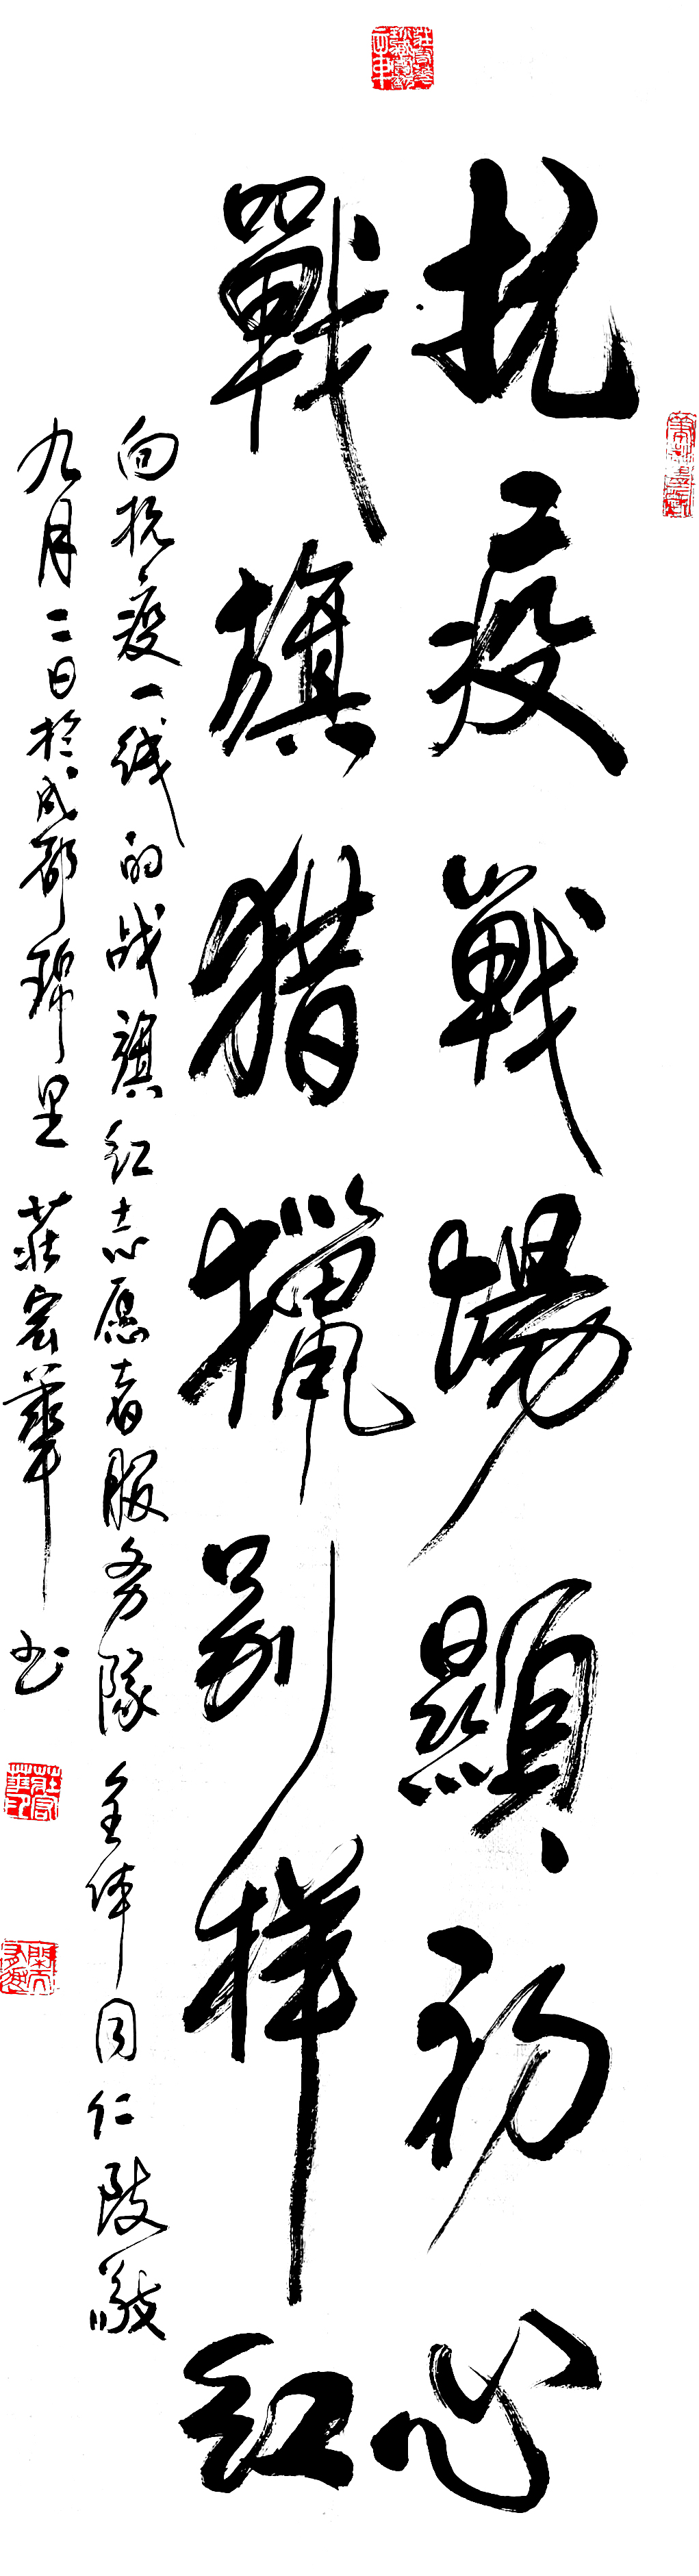 抗疫戰場顯初心
戰旗猎獵别样红
向抗疫一线的战旗红志愿者服务隊全体同仁致敬
九月二日於成都锦里 莊宏華书